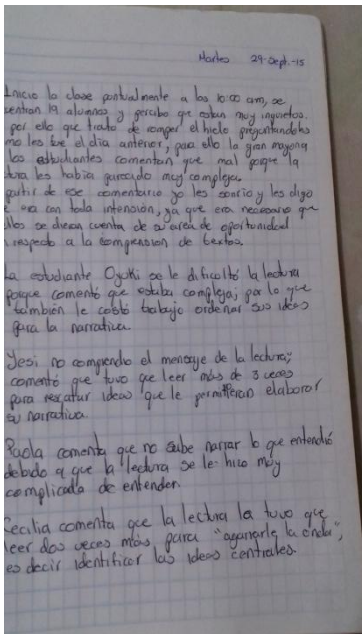 Martes 29-Sept.-15
Inicio la clase pontualmente a las 10:00 am, se
centran 19 alumnos y percibo que estan muy inquietos.
por ello que trato de romper el hielo preguntandoles
mo les fue el dia anterior, para ello la gran mayoria
los estudiantes comentan que mal porque la
tura les habia parecido muy compleja.
partir de ese comentario yo les sonrio y les digo
e era con toda intensión, ya que era necesario que
llos se dieran cuenta de su area de oportunidad
respecto a la comprension de textos.
La estudiante Oyuki se le dificultó la lectura
porque comentó que estaba compleja; por lo que
también le costó trabajo ordenar sus ideas
para la narrativa.
Yesi no comprendio el mensaje de la lectura;
comentó que tuvo que leer más de 3 veces
para rescatar ideas que le permitieran elaborar
su narrativa.
Paola comenta que no sabe narrar lo que entendió
debido a que la lectura se le hizo muy
complicada de entender.
Cecilia comenta que la lectura la tuvo que
leer dos veces más para "agarrarle la onda",
es decir identificar las ideas centrales.